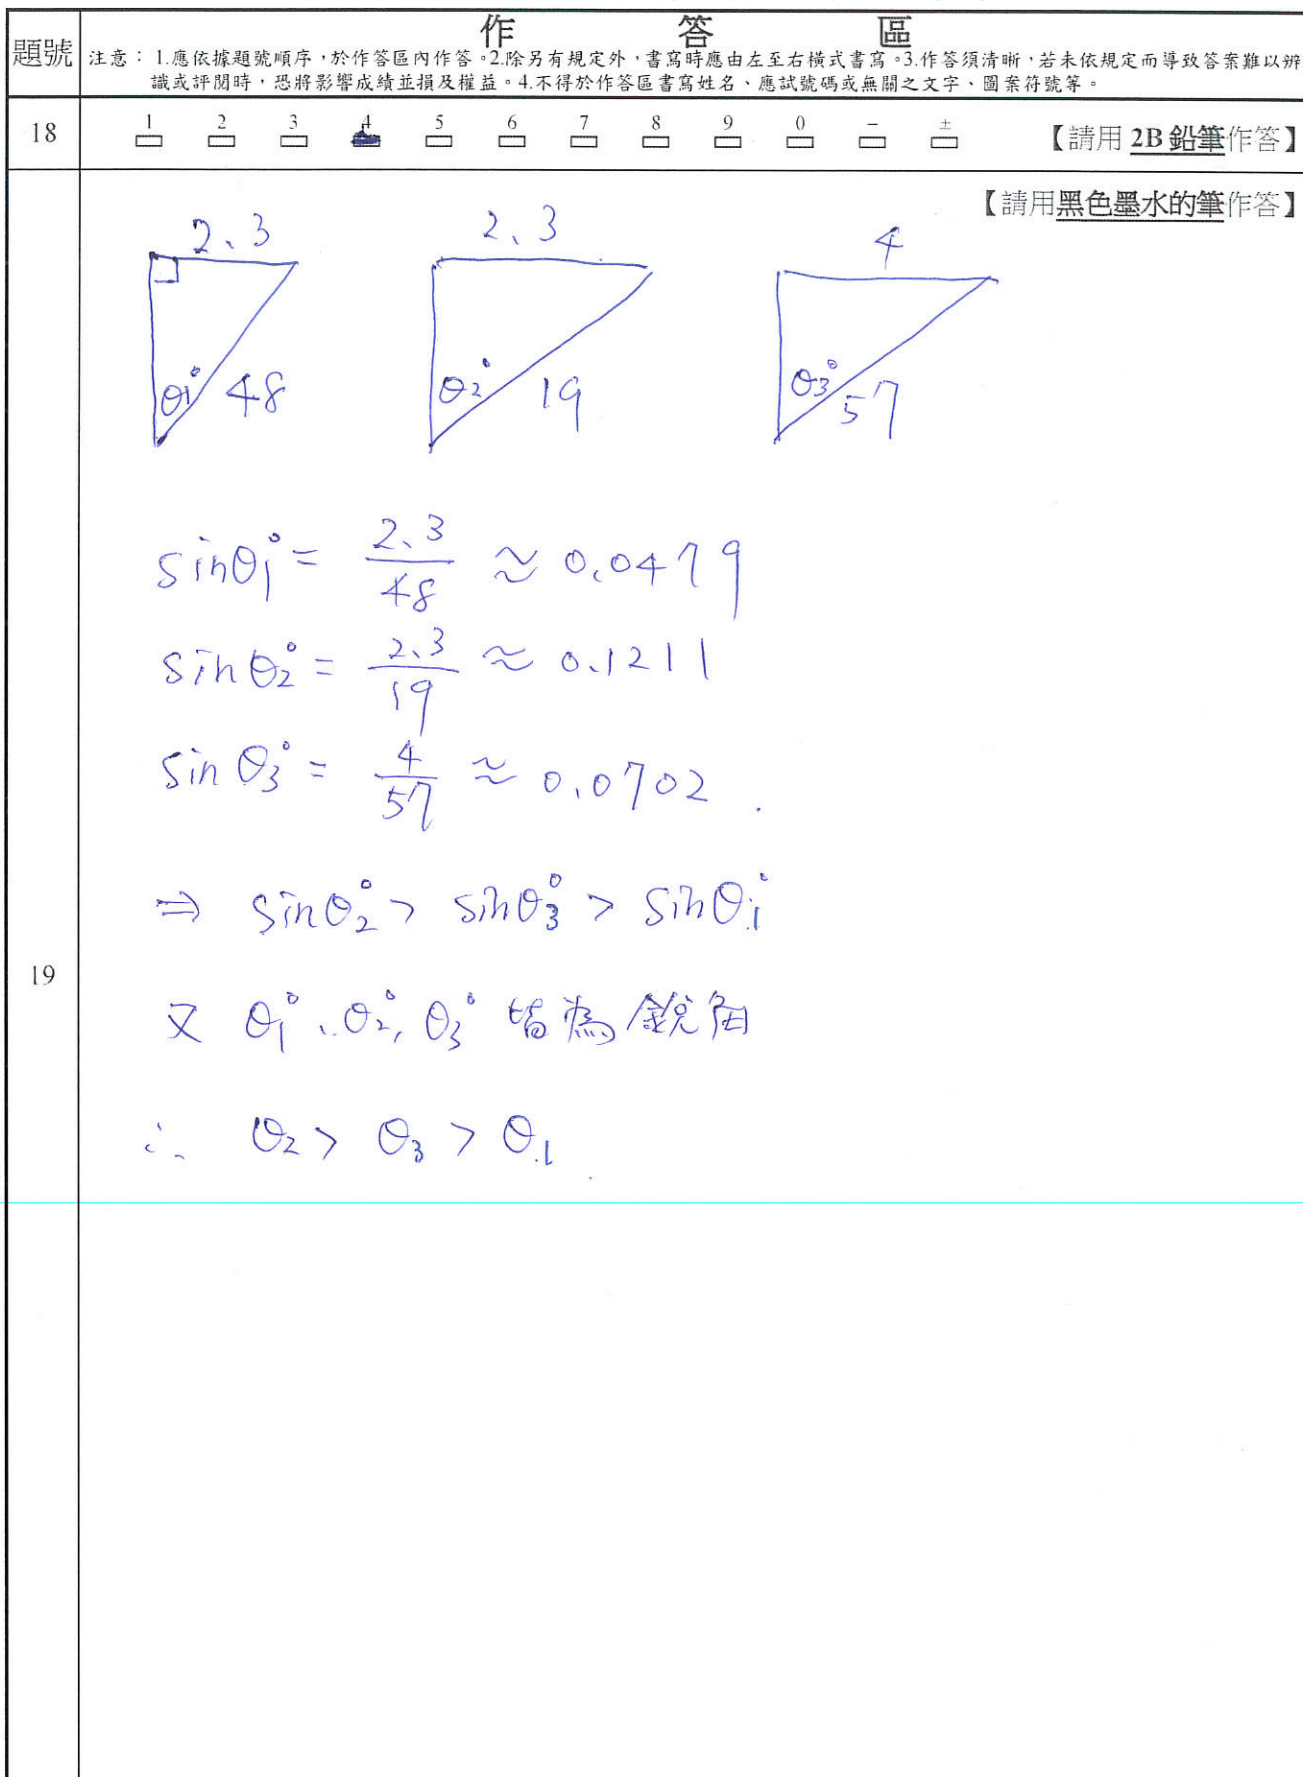 作答區
題號
注意：1.應依據題號順序，於作答區內作答。2.除另有規定外，書寫時應由左至右橫式書寫。3.作答須清晰，若未依規定而導致答案難以辨
識或評閱時，恐將影響成績並損及權益。4.不得於作答區書寫姓名、應試號碼或無關之文字、圖案符號等。
18
1 2 3 4 5 6 7 8 9 0 − ±
【請用 2B 鉛筆作答】
【請用黑色墨水的筆作答】
2、3 2、3 4
θ1° 48 θ2° 19 θ3° 57
sinθ1° = 2.3/48 ≈ 0.0479
sinθ2° = 2.3/19 ≈ 0.1211
sinθ3° = 4/57 ≈ 0.0702
⇒ sinθ2° > sinθ3° > sinθ1°
19
又 θ1°、θ2°, θ3° 皆為銳角
∴ θ2 > θ3 > θ1